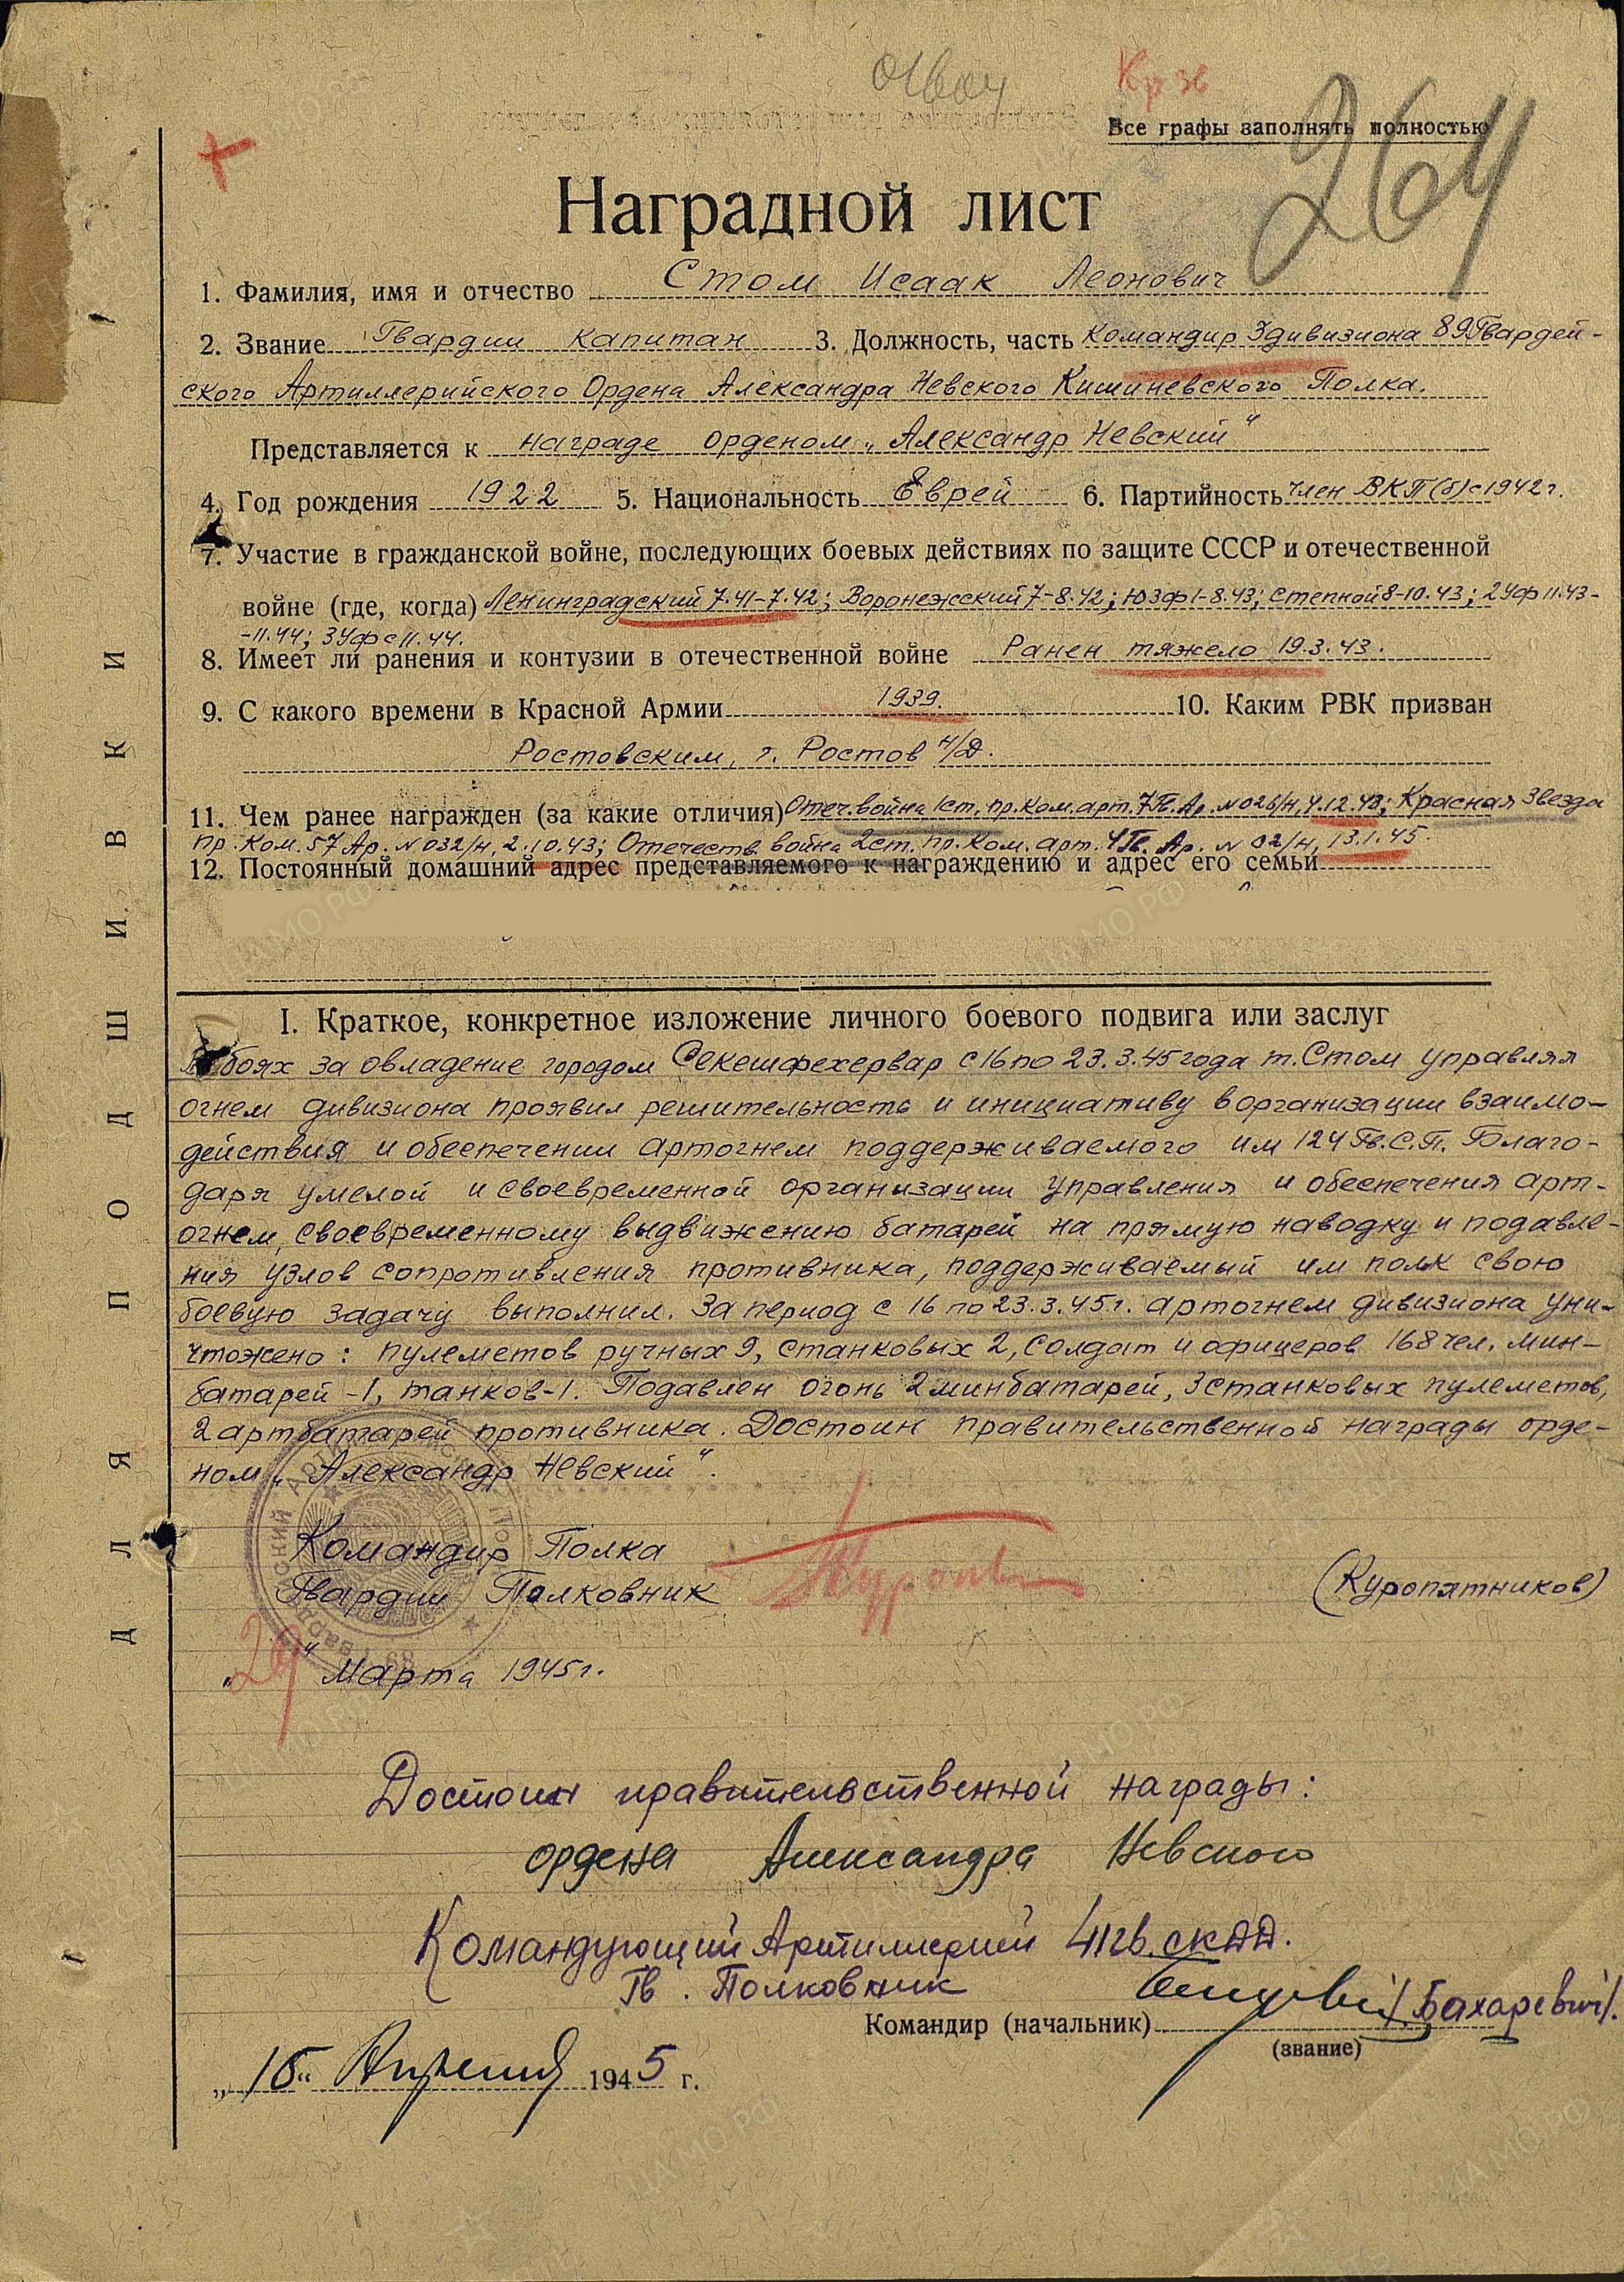 Кр зв
Все графы заполнять полностью
264
Наградной лист
1. Фамилия, имя и отчество Стом Исаак Леонович
2. Звание Гвардии капитан 3. Должность, часть Командир 3 дивизиона 89 Гвардей-
ского Артиллерийского Ордена Александра Невского Кишиневского Полка.
Представляется к награде орденом „Александр Невский“
4. Год рождения 1922 5. Национальность Еврей 6. Партийность Член ВКП(б) с 1942 г.
7. Участие в гражданской войне, последующих боевых действиях по защите СССР и отечественной
войне (где, когда) Ленинградский 7.41-7.42; Воронежский 7-8.42; ЮЗФ 1-8.43; Степной 8-10.43; 2 Уф 11.43-
-11.44; 3 Уф с 11.44.
8. Имеет ли ранения и контузии в отечественной войне Ранен тяжело 19.3.43.
9. С какого времени в Красной Армии 1939. 10. Каким РВК призван
Ростовским, г. Ростов н/Д.
11. Чем ранее награжден (за какие отличия) Отеч. война 1 ст. пр. Ком. арт. 7 Гв. Ар. № 026/н, 4.12.43; Красная Звезда
Пр. Ком. 57 Ар. № 032/н, 2.10.43; Отечеств. война 2 ст. пр. Ком. арт. 4 Гв. Ар. № 02/н, 13.1.45.
12. Постоянный домашний адрес представляемого к награждению и адрес его семьи
I. Краткое, конкретное изложение личного боевого подвига или заслуг
В боях за овладение городом Секешфехервар с 16 по 23.3.45 года т. Стом управляя
огнем дивизиона проявил решительность и инициативу в организации взаимо-
действия и обеспечении артогнем поддерживаемого им 124 Гв. С.П. Благо-
даря умелой и своевременной организации управления и обеспечения арт-
огнем, своевременному выдвижению батарей на прямую наводку и подавле-
ния узлов сопротивления противника, поддерживаемый им полк свою
боевую задачу выполнил. За период с 16 по 23.3.45 г. артогнем дивизиона уни-
чтожено: пулеметов ручных 9, станковых 2, солдат и офицеров 168 чел. мин-
батарей -1, танков-1. Подавлен огонь 2 минбатарей, 3 станковых пулеметов,
2 артбатарей противника. Достоин правительственной награды орде-
ном „Александр Невский“.
Командир Полка
Гвардии Полковник (Куропятников)
„29“ Марта 1945 г.
Достоин правительственной награды:
ордена Александра Невского
Командующий Артиллерией 41 гв. скдд.
Гв. Полковник
Командир (начальник) /Бахаревич/.
(звание)
„15“ Апреля 1945 г.
ДЛЯ ПОДШИВКИ